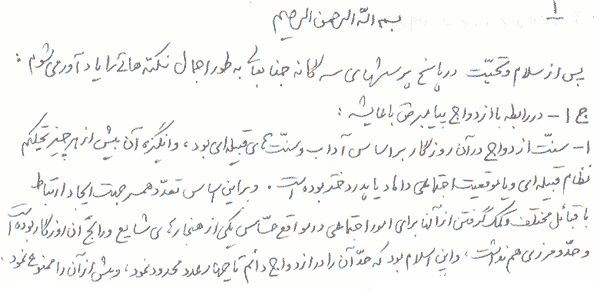 ۱
بسم الله الرحمن الرحیم
پس از سلام و تحیّت در پاسخ پرسشهای سه گانه جنابعالی به طور اجمال نکته هائی را یادآور می شوم :
ج ۱ - در رابطه با ازدواج پیامبر (ص) با عایشه :
۱- سنّت ازدواج در آن روزگار بر اساس آداب و سنّت های قبیله ای بود ، و انگیزه آن بیش از هر چیز تحکیم
نظام قبیله ای و یا موقعیت اجتماعی داماد یا پدر دختر بوده است . و بر این اساس تعدّد همسر جهت ایجاد ارتباط
با قبائل مختلف و کمک گرفتن از آنها برای امور اجتماعی در مواقع حسّاس یکی از هنجارهای شایع و رائج آن روزگار بوده است
و حدّ و مرزی هم نداشت ، و این اسلام بود که حدّ آن را در ازدواج دائم تا چهار عدد محدود نمود ، و بیش از آن را ممنوع نمود .